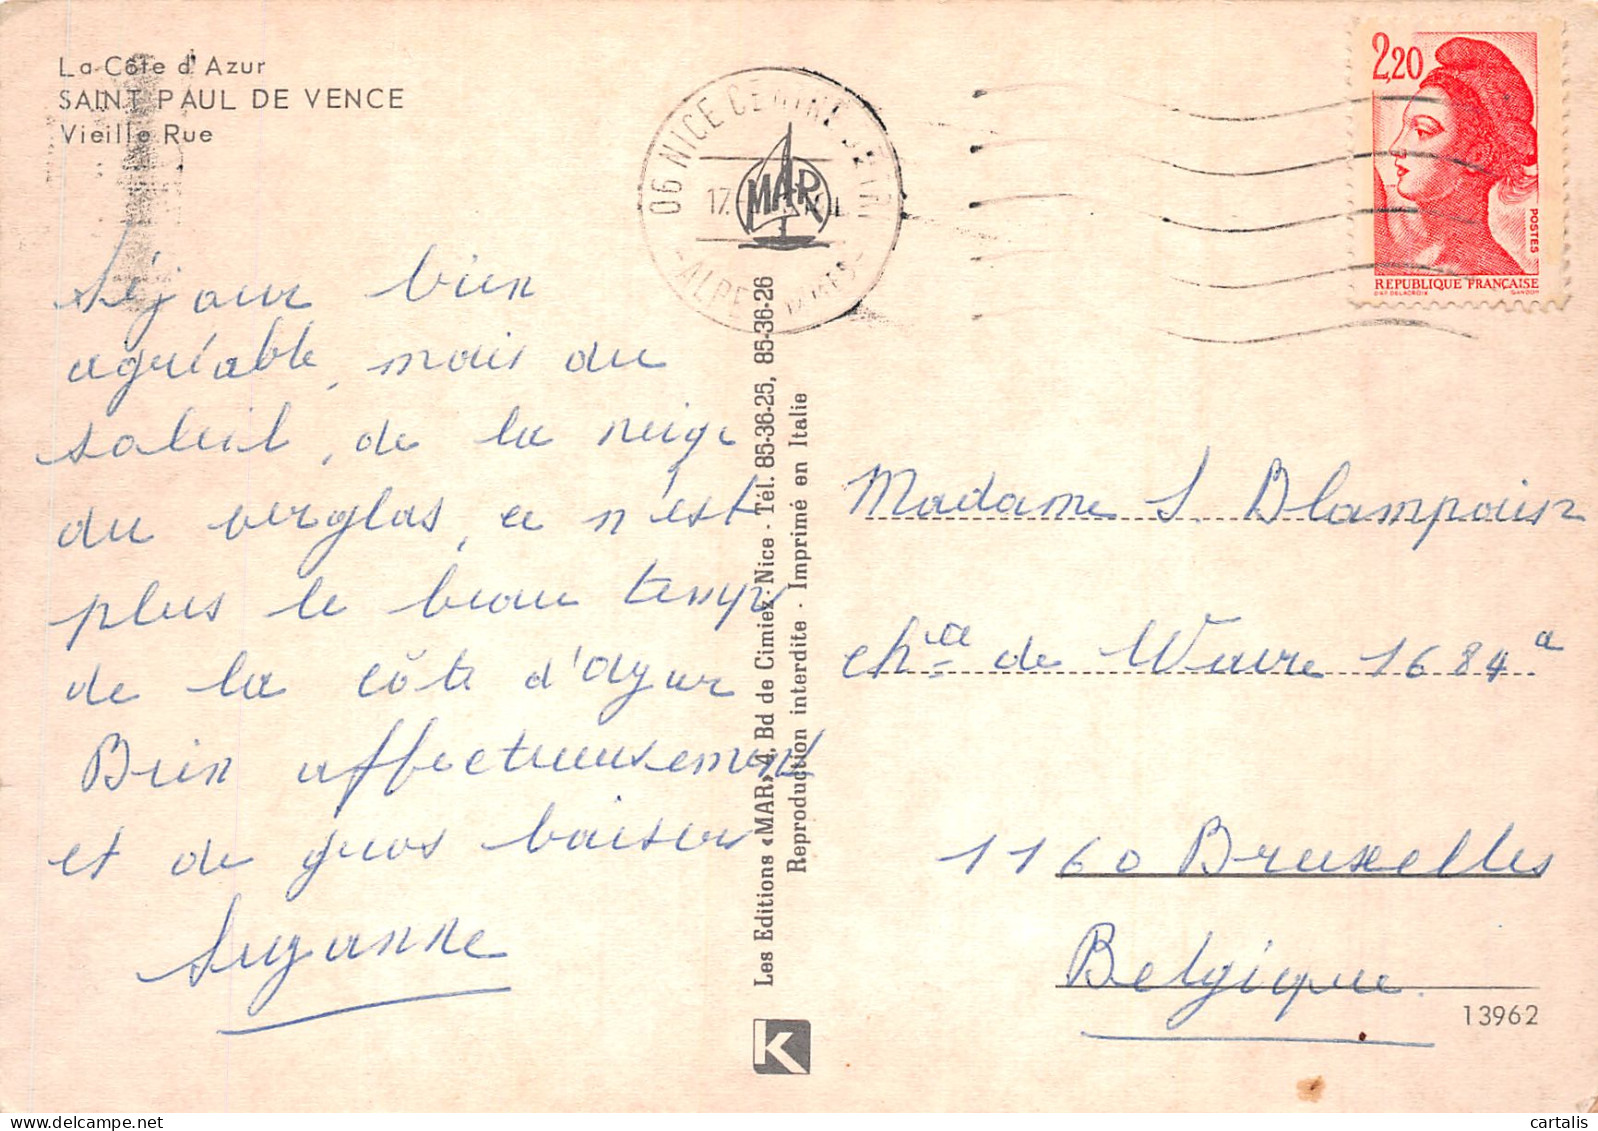 La Côte d'Azur
SAINT PAUL DE VENCE
Vieille Rue
Séjour bien
agréable, mais du
soleil, de la neige
du verglas, ce n'est
plus le beau temps
de la côte d'Azur
Bien affectueusement
et de gros baisers
Suzanne
06 NICE CENTRE
17.
ALPES
MAR
Les Editions «MAR» 4, Bd de Cimiez - Nice - Tél. 85-36-25, 85-36-26
Reproduction interdite - Imprimé en Italie
K
2,20
POSTES
REPUBLIQUE FRANÇAISE
D'AP. DELACROIX GANDON
Madame S. Blampain
chée de Wavre 1684a
1160 Bruxelles
Belgique.
13962
cartalis